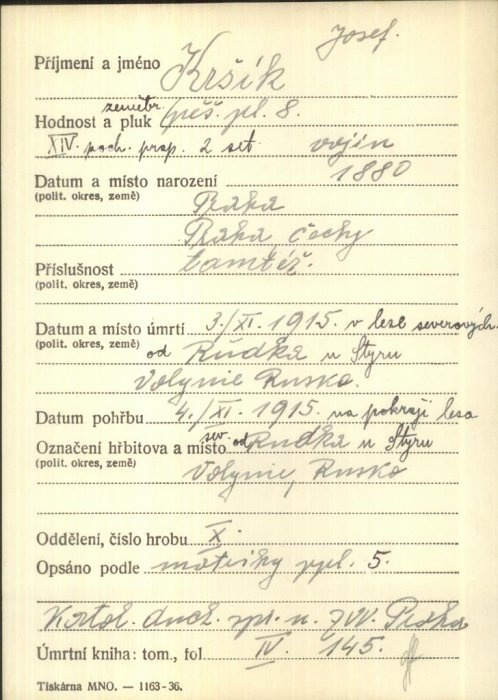 Josef.
Příjmení a jméno Kršík
zeměbr.
Hodnost a pluk pěš. pl. 8.
XIV. poch. prap. 2 set vojín
Datum a místo narození 1880
(polit. okres, země) Praha
Praha, Čechy
Příslušnost tamtéž.
(polit. okres, země)
Datum a místo úmrtí 3./XI. 1915. v lese severových.
(polit. okres, země) od Rudka u Styru
Volynie Rusko.
Datum pohřbu 4./XI. 1915. na pokraji lesa
Označení hřbitova a místo sev. od Rudka u Styru
(polit. okres, země) Volynie, Rusko
Oddělení, číslo hrobu X.
Opsáno podle matriky ppl. 5.
duch. spr. n.
Úmrtní kniha: tom., fol. IV. 145.
Tiskárna MNO. — 1163-36.